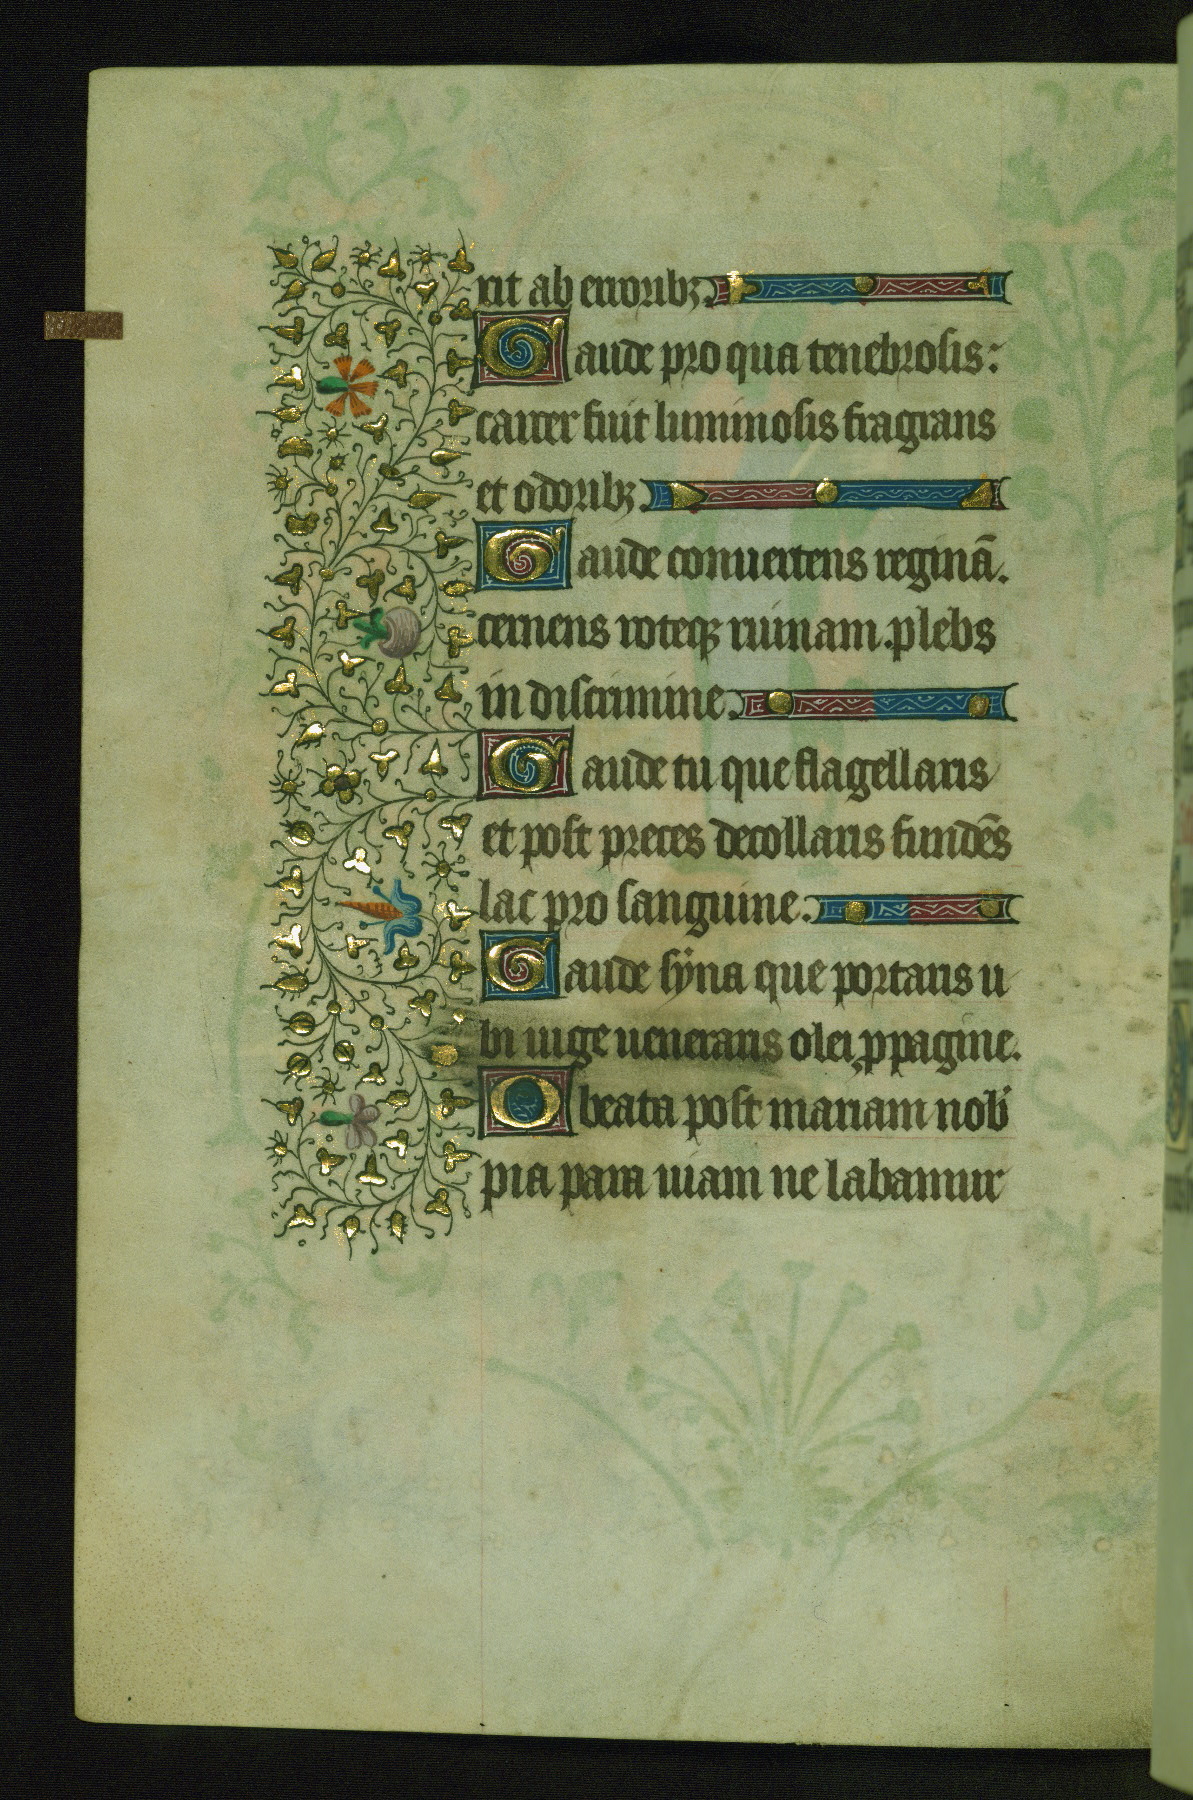 rit ab erroribꝫ
Gaude pro qua tenebrosis:
carcer fuit luminosis fragrans
et odoribꝫ
Gaude conuertens reginā.
cernens roteqꝫ ruinam. plebs
in discrimine.
Gaude tu que flagellaris
et post preces decollaris fundēs
lac pro sanguine.
Gaude syna que portaris u
bi iuge ueneraris olei ꝓpagine.
O beata post mariam nob̄
pia para uiam ne labamur